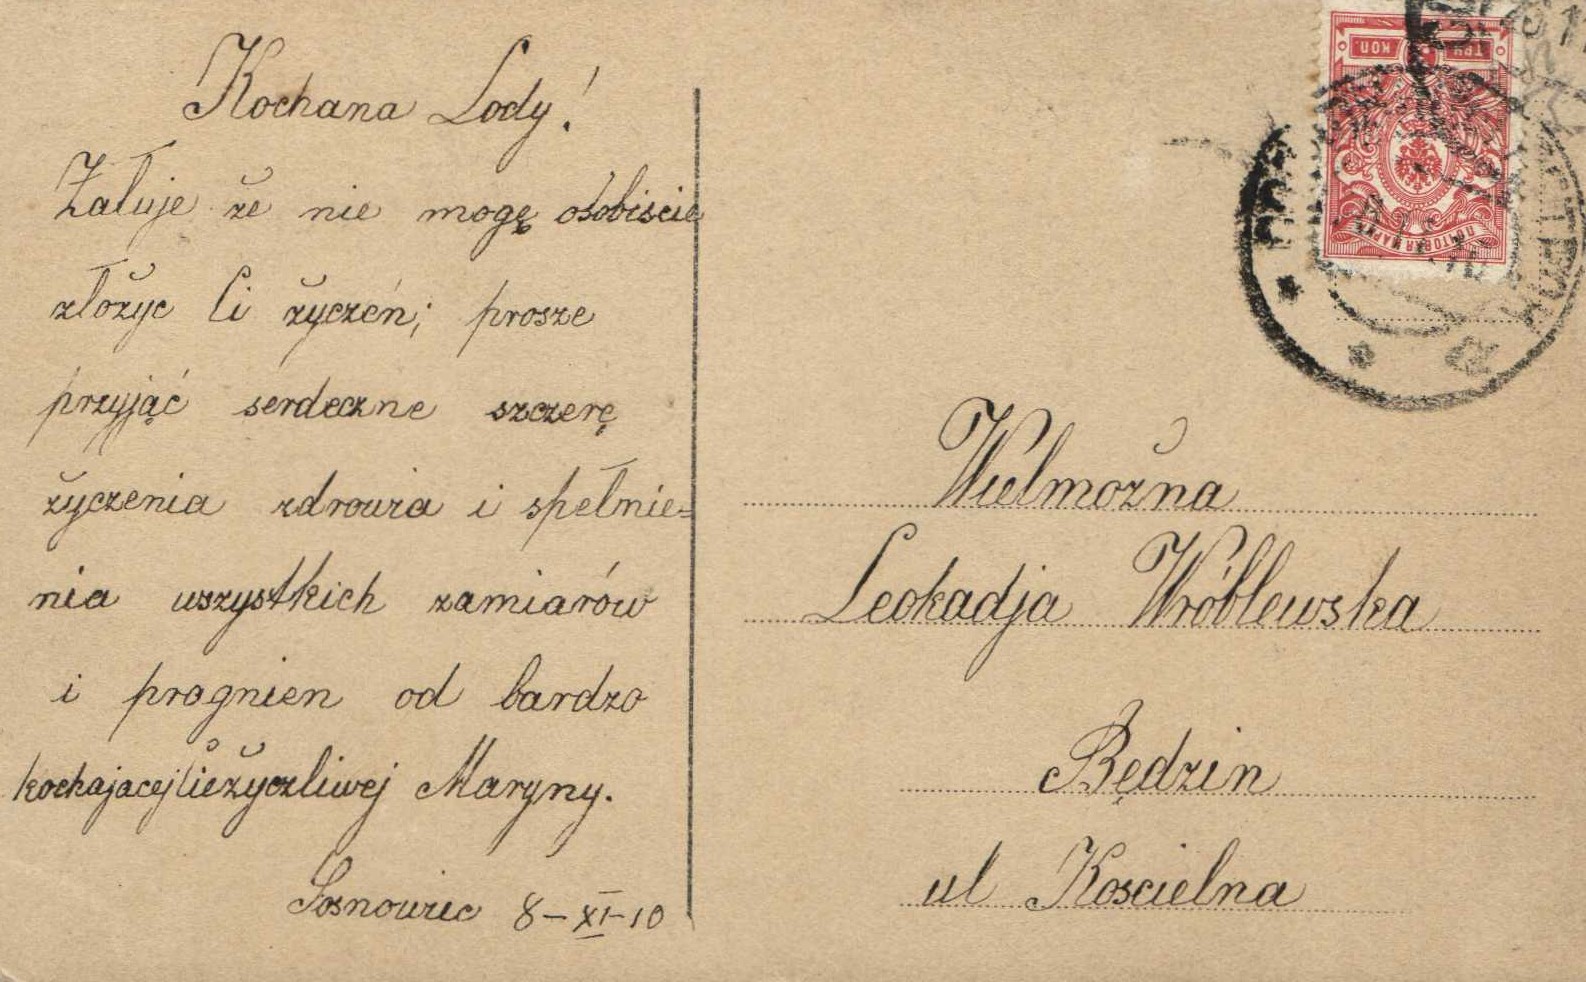 Kochana Lody!
Załuje że nie mogę osobiscie
złożyc Ci życzeń; prosze
przyjąć serdeczne szczerę
życzenia zdrowia i spełnie=
nia wszystkich zamiarów
i pragnien od bardzo
kochajacej Cie życzliwej Maryny.
Sosnowiec 8-XI-10
ТРИ КОП.
ПОЧТОВАЯ МАРКА
Wielmożna
Leokadja Wróblewska
Będzin
ul Koscielna